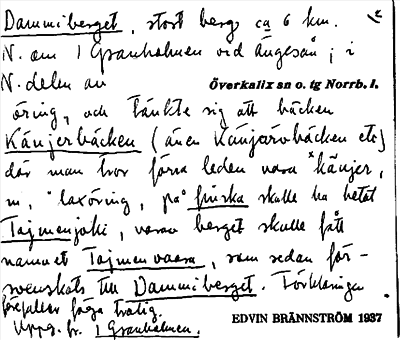 Dammiberget, stort berg ca 6 km.
N. om 1 Granholmen vid Ängesån, i
N. delen av
Överkalix sn o. tg Norrb. l.
öring, och tänkte sig att bäcken
Känjerbäcken (även Känjärvbäcken etc)
där man tror förra leden vara *känjer,
ni, "laxöring, på" finska skulle ha hetat
Tajmenjoki, varav berget skulle fått
namnet Tajmenvaara, som sedan för-
svenskats till Dammiberget. Förklaringen
förefaller föga trolig.
Uppg. fr. 1 Granholmen.
EDVIN BRÄNNSTRÖM 1937